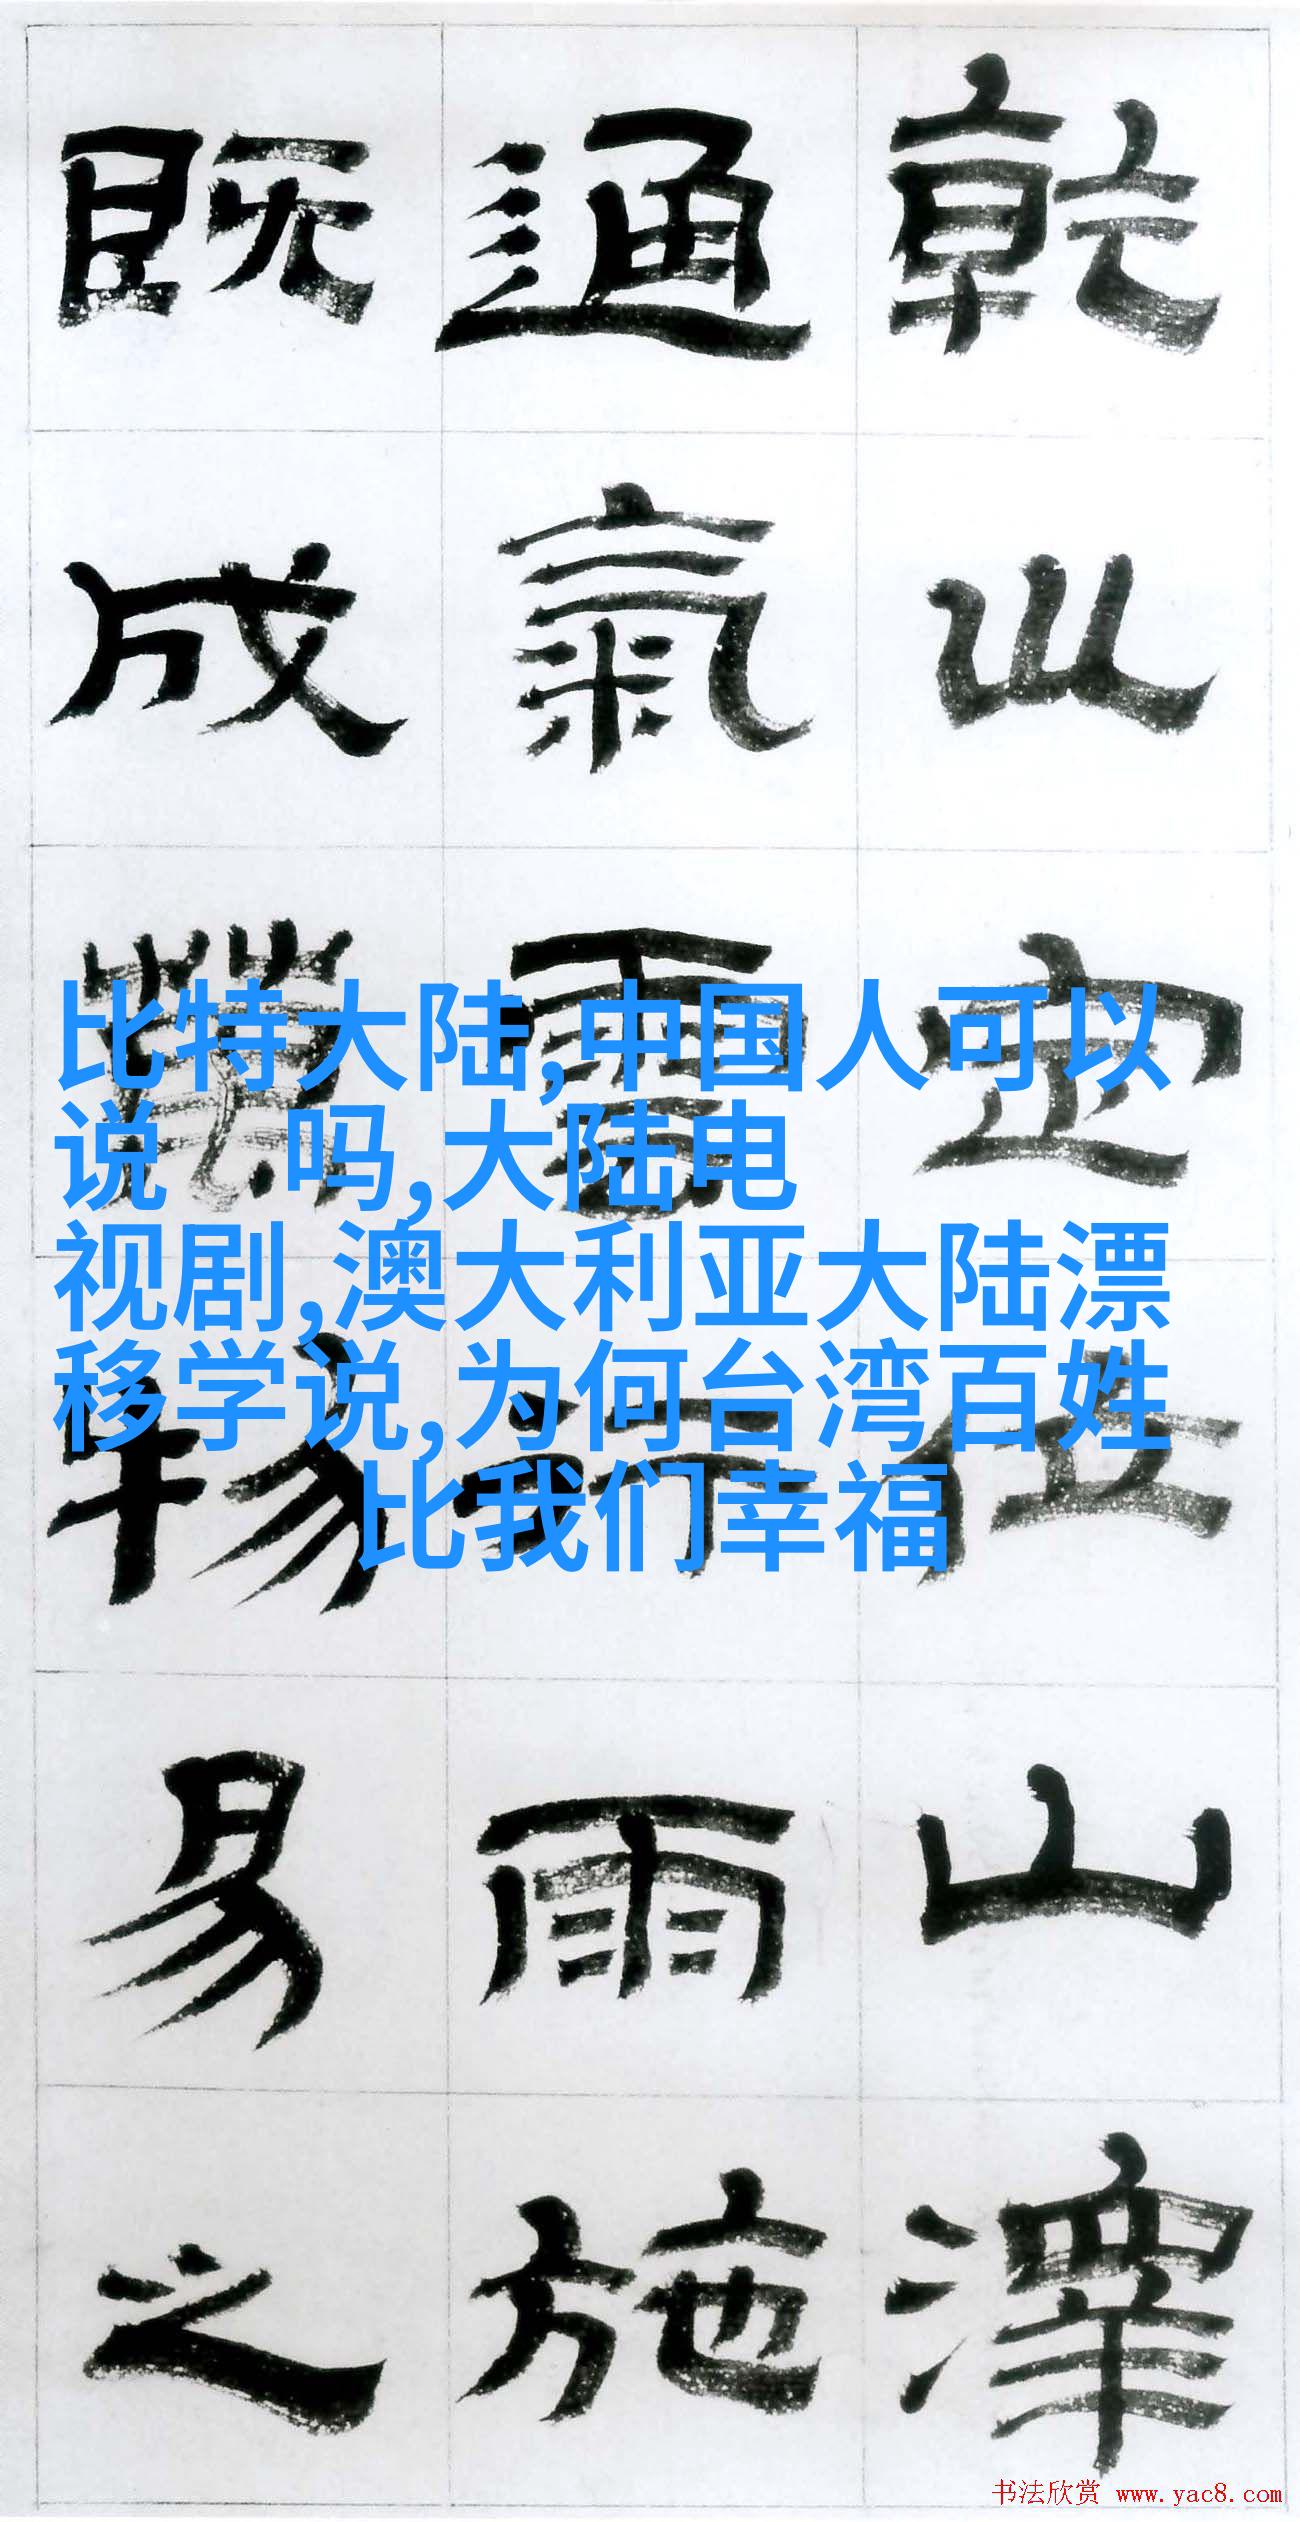 乾坤定位山澤
通氣雲行雨施
既成萬物易之
比特大陆,中国人可以
说　吗,大陆电
视剧,澳大利亚大陆漂
移学说,为何台湾百姓
比我们幸福
书法欣赏 www.yac8.com